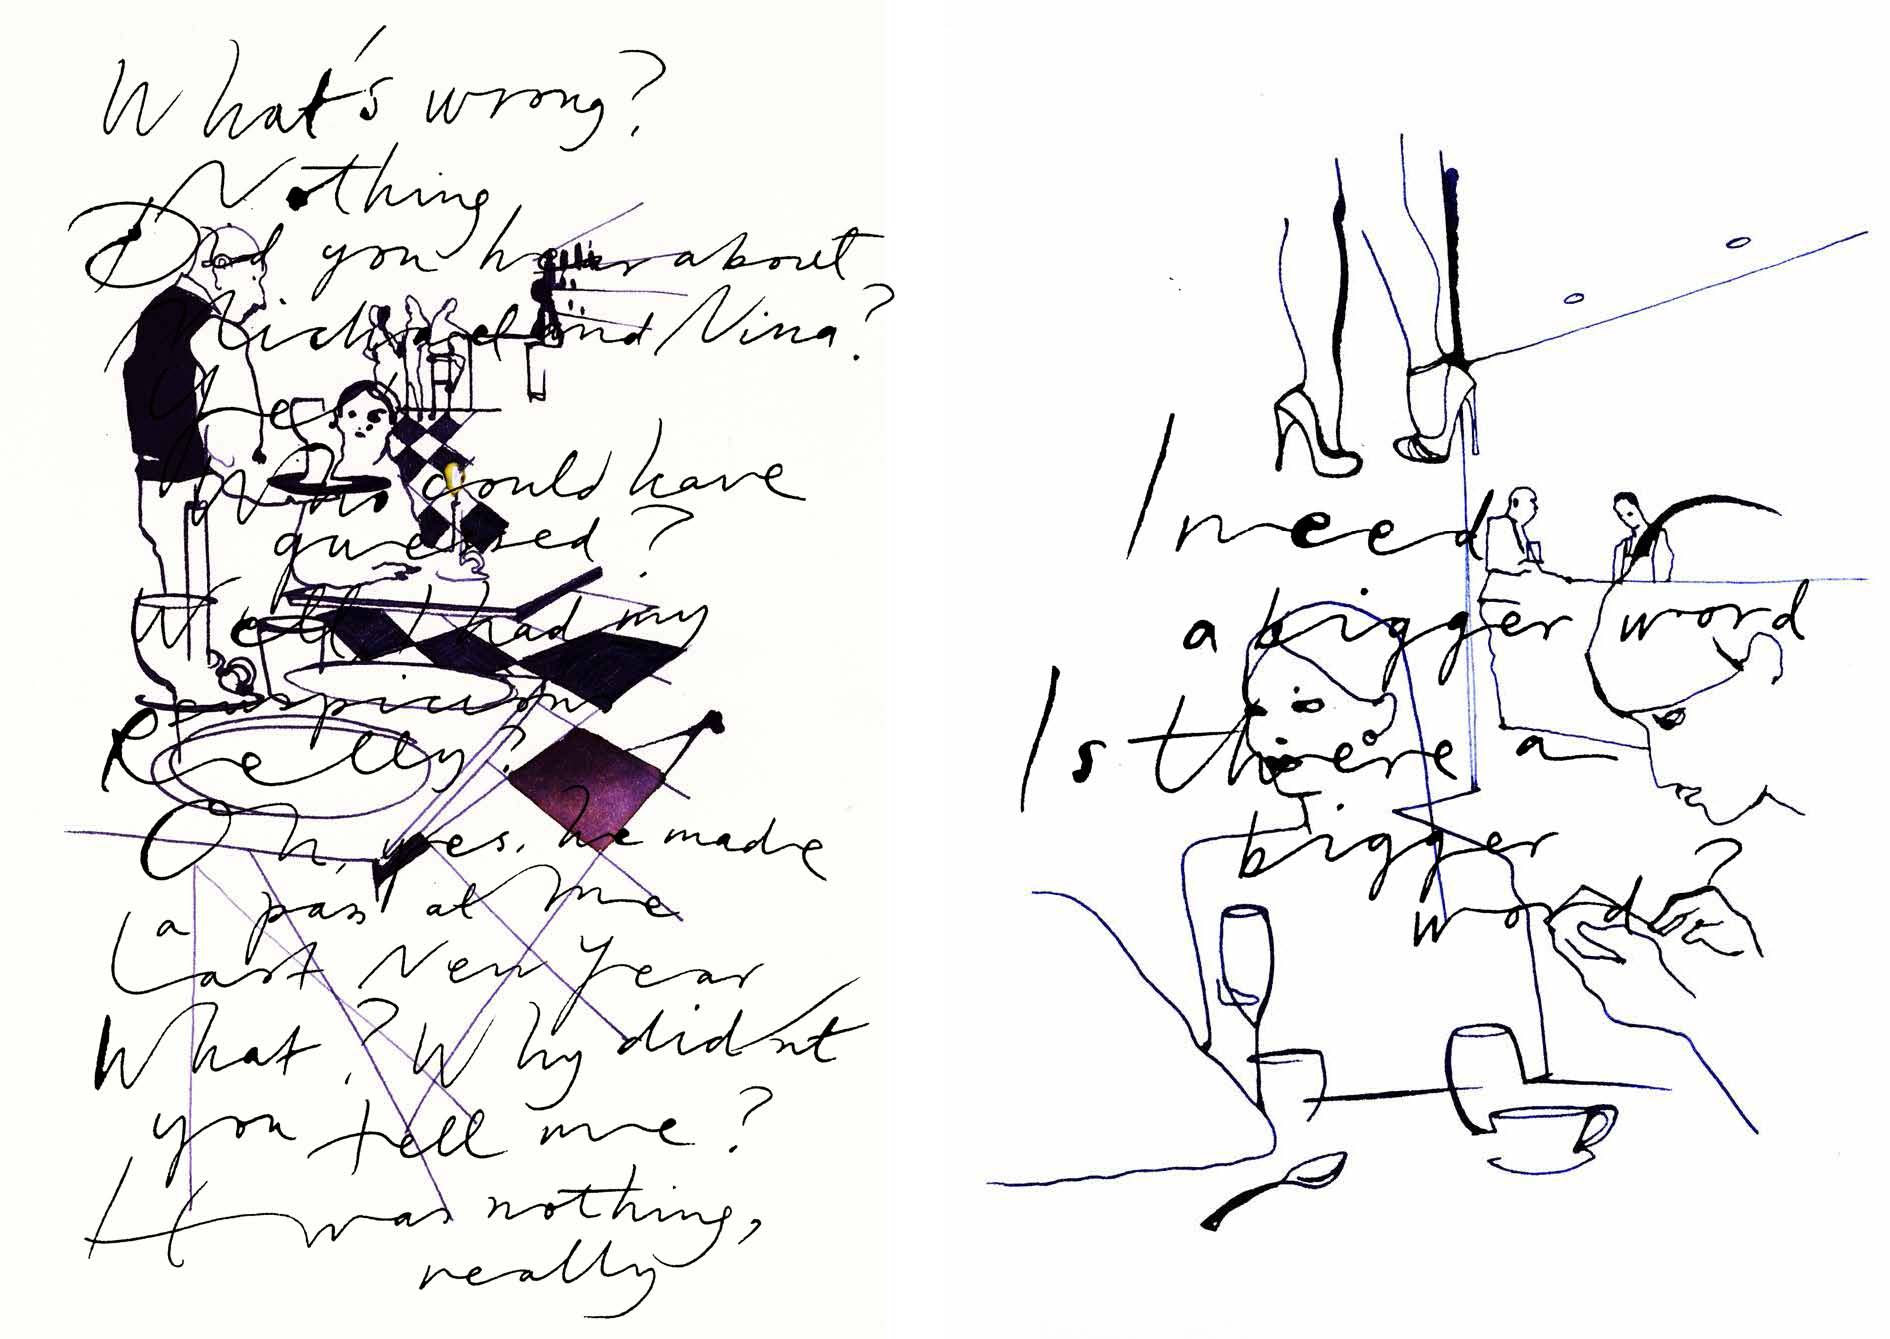 What's wrong?
Nothing
Did you hear about
Michael and Nina?
Yes
Who could have
guessed?
Well I had my
suspicions
Really?
Oh, yes. he made
a pass at me
Last New Year
What? Why didn't
you tell me?
It was nothing,
really
I need
a bigger word
Is there a
bigger
word?